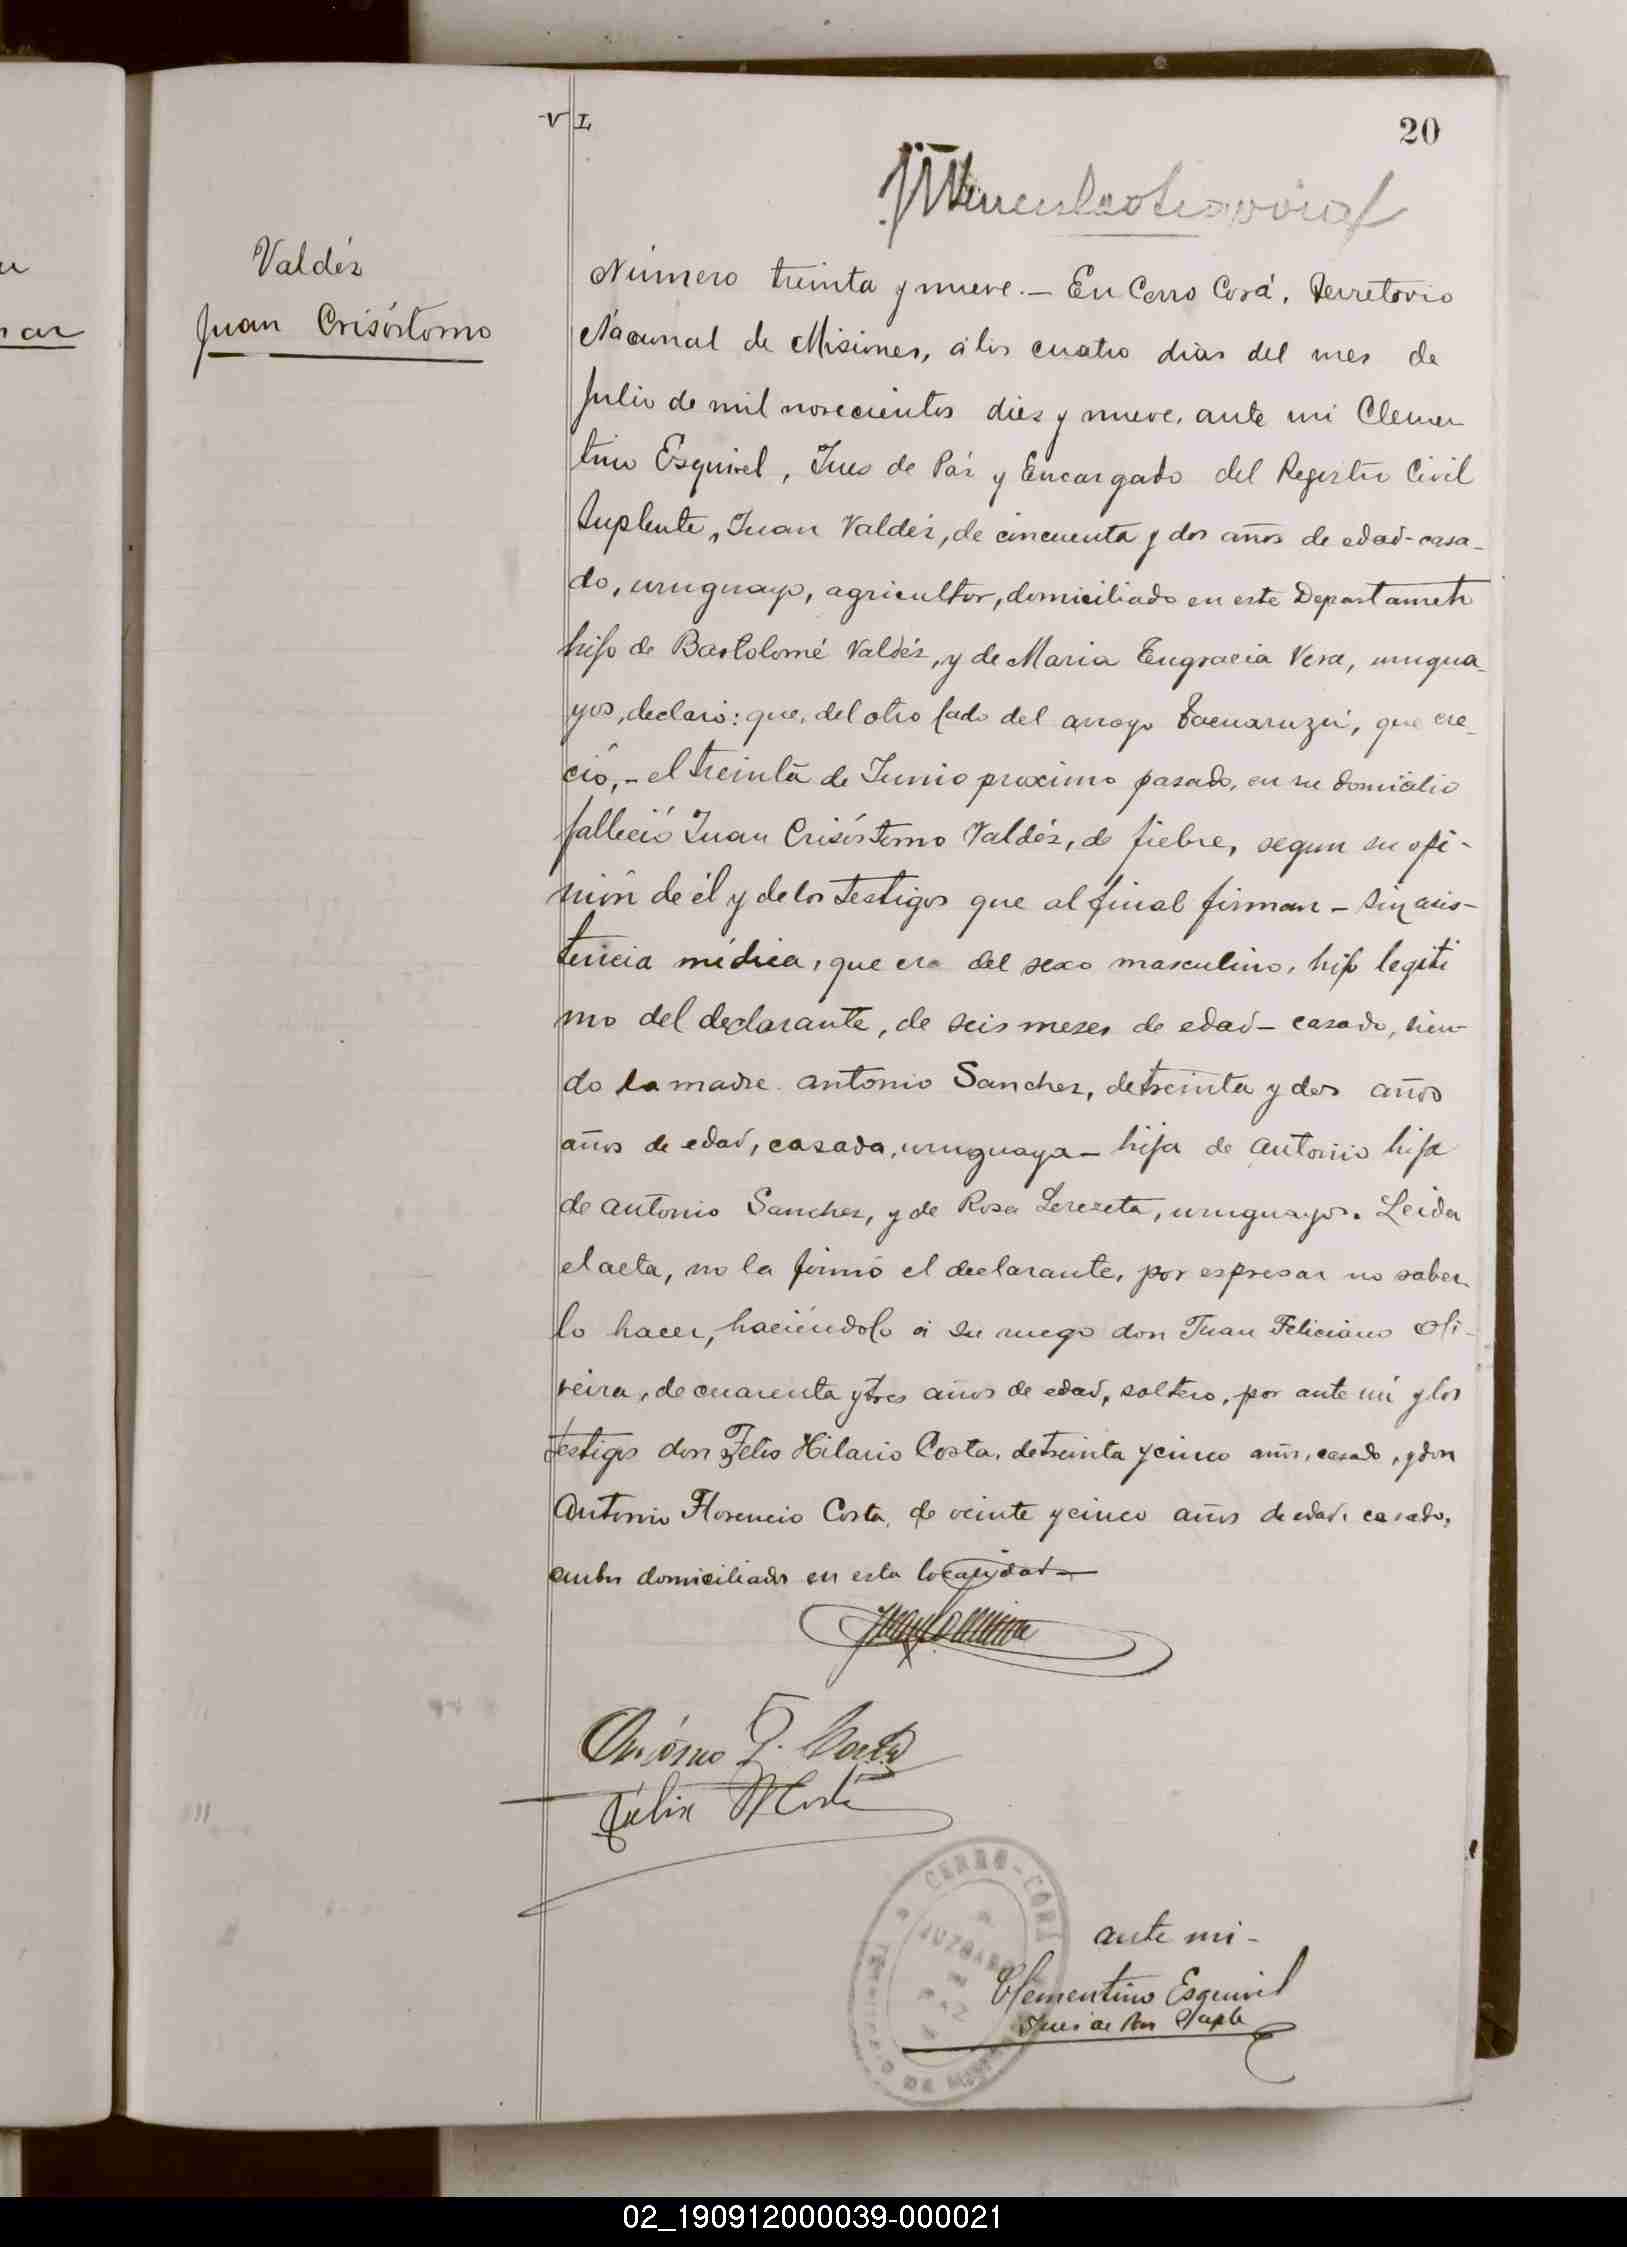 V I
20
Valdéz
Juan Crisóstomo
Número treinta y nueve.— En Cerro Corá, Terretorio
Nacional de Misiones, á los cuatro dias del mes de
Julio de mil novecientos diez y nueve, ante mi Clemen
tino Esquivel, Jues de Páz y Encargado del Registro Civil
Suplente, Juan Valdéz, de cincuenta y dos años de edad-casa-
do, uruguayo, agricultor, domiciliado en este Departameto
hijo de Bartolomé Valdéz, y de Maria Engracia Vera, urugua-
yos, declaró: que, del otro lado del arroyo Tacuaruzú, que cre-
ció,- el treinta de Junio proximo pasado, en su domicilio
falleció Juan Crisóstomo Valdéz, de fiebre, segun su opi-
nión de él y de los testigos que al final firman - sin asis-
tencia médica, que era del sexo masculino, hijo legiti
mo del declarante, de seis meses de edad - casado, sien-
do la madre antonio Sanchez, de treinta y dos años
años de edad, casada, uruguaya - hija de antonio hija
de antonio Sanchez, y de Rosa Lerezeta, uruguayos. Leida
el acta, no la firmó el declarante, por espresar no saber
lo hacer, haciéndolo á su ruego don Juan Feliciano Oli-
veira, de cuarenta y tres años de edad, soltero, por ante mi y los
testigos don Felis Hilario Costa, de treinta y cinco años, casado, y don
Antonio Florencio Costa, de veinte y cinco años de edad, casado,
ambos domiciliados en esta localidad—
Antonio F. Costa
Félix H Costa
CERRO-CORÁ
JUZGADO
DE
PAZ
TERRITORIO DE MISIONES
ante mi-
Clementino Esquivel
Jues de Paz Suple
02_190912000039-000021